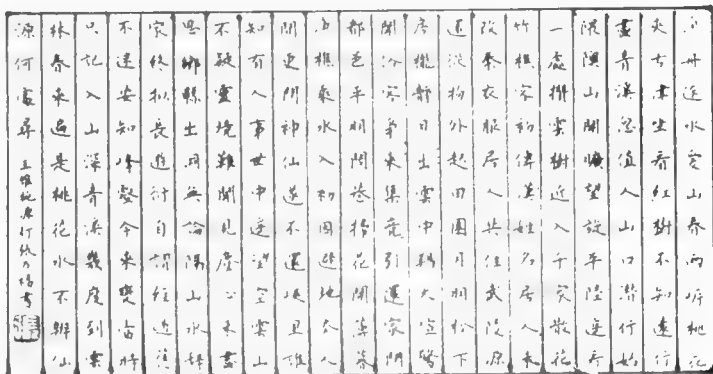 漁舟逐水愛山春兩岸桃花
夾古津坐看紅樹不知遠行
盡青溪忽值人山口潛行始
隈隩山開曠望旋平陸遙看
一處攢雲樹近入千家散花
竹樵客初傳漢姓名居人未
改秦衣服居人共住武陵源
還從物外起田園月明松下
房櫳靜日出雲中雞犬喧驚
聞俗客爭來集競引還家問
都邑平明閭巷掃花開薄暮
漁樵乘水入初因避地去人
間更問神仙遂不還峽里誰
知有人事世中遙望空雲山
不疑靈境難聞見塵心未盡
思鄉縣出洞無論隔山水辭
家終擬長遊衍自謂經過舊
不迷安知峰壑今來變當時
只記入山深青溪幾度到雲
林春來遍是桃花水不辨仙
源何處尋 王維桃源行